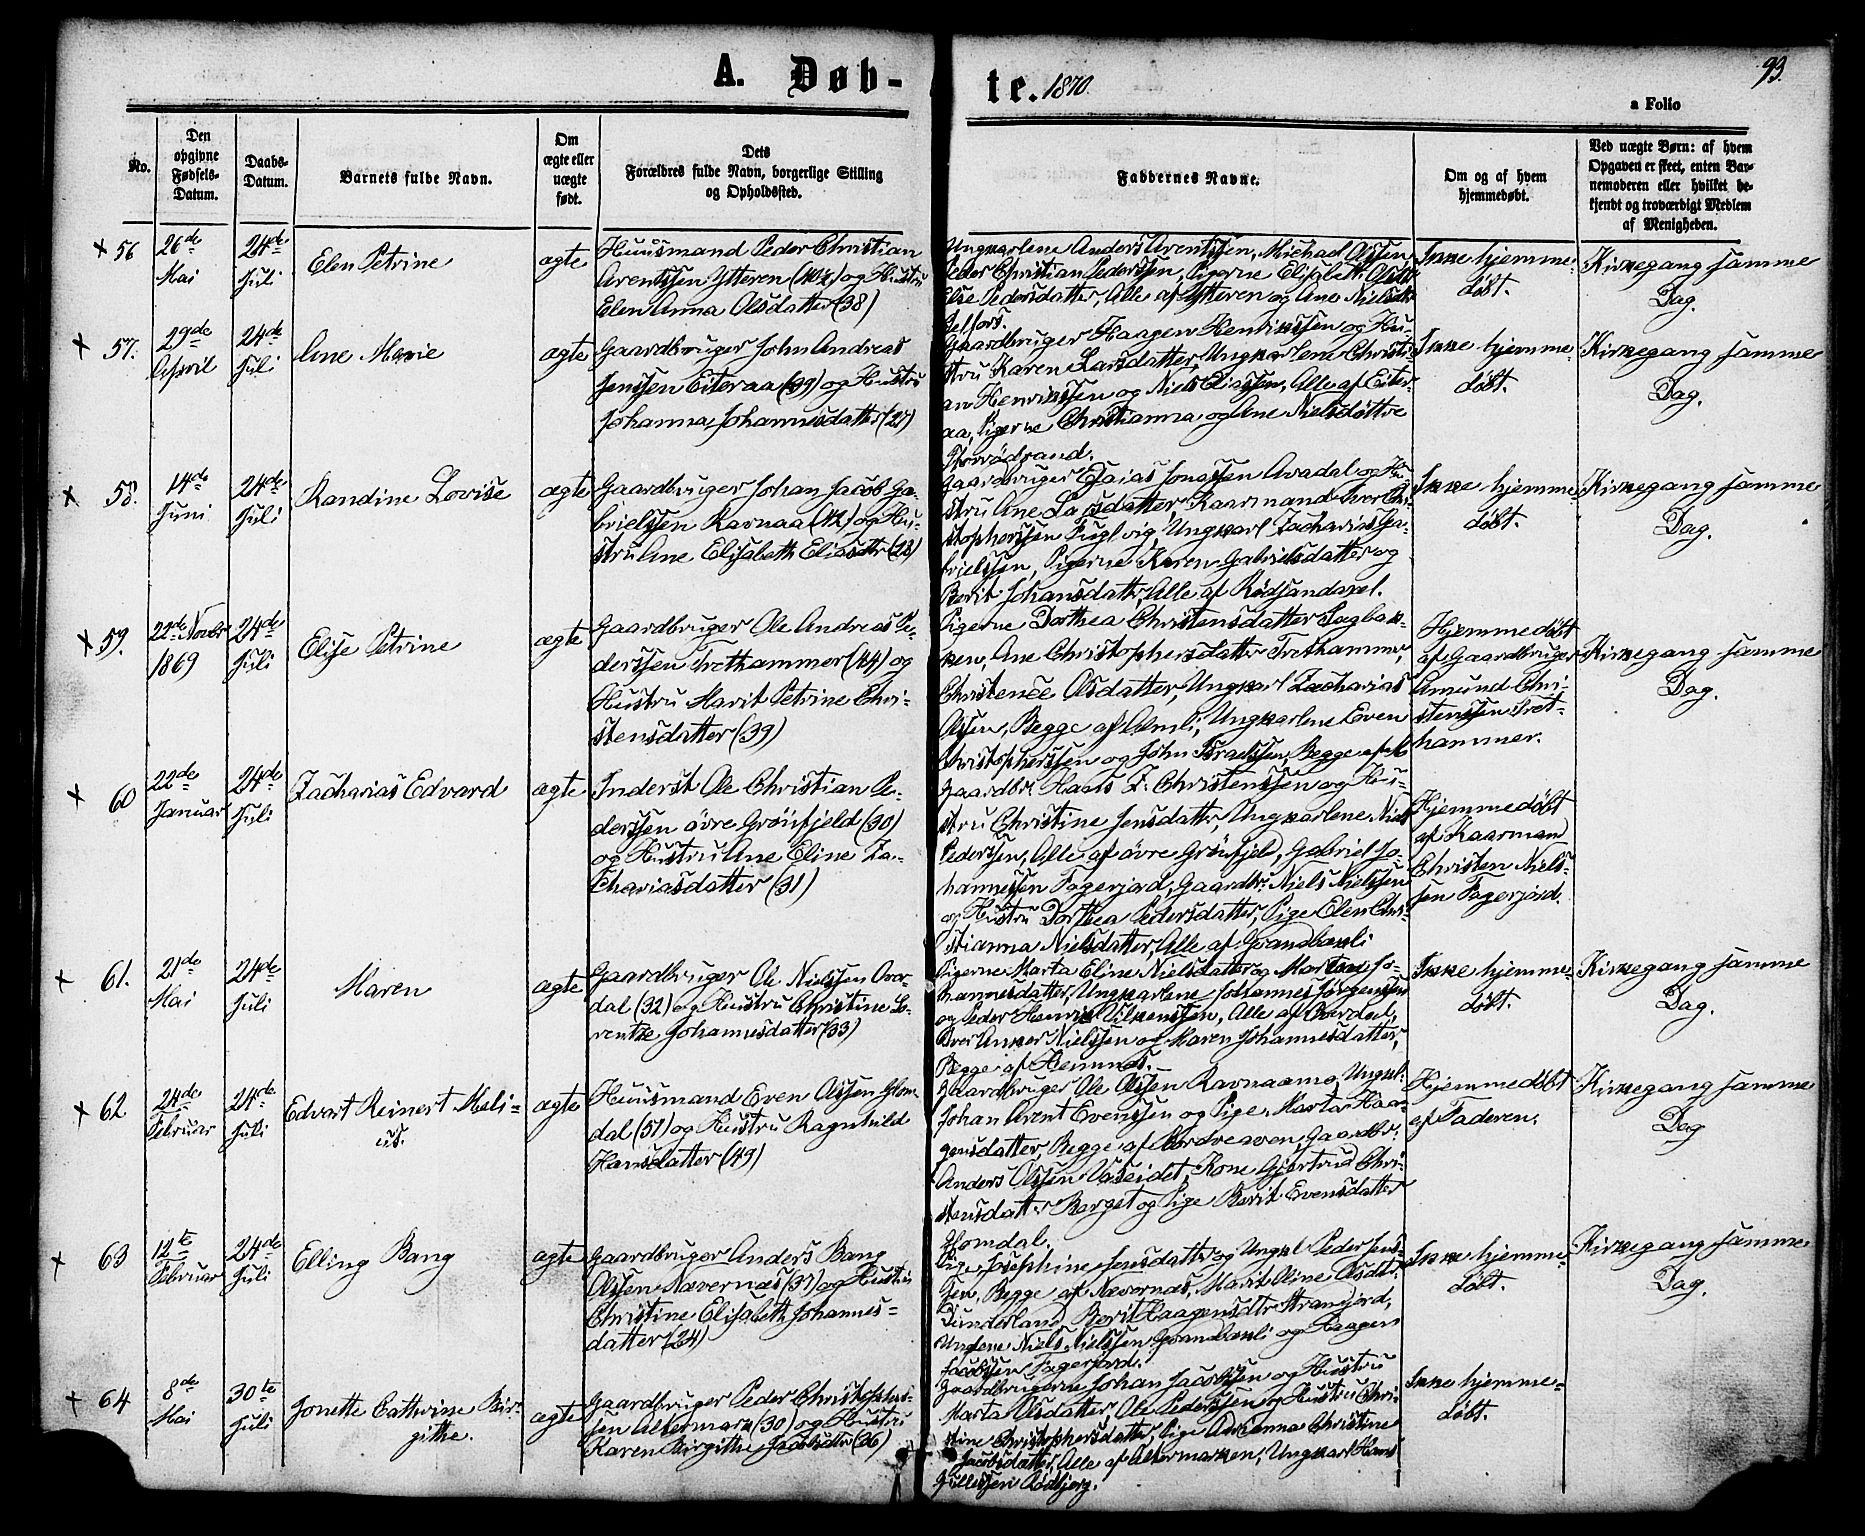 A. Døb-te. 1870.
93.
a Folio
No.
Den
opgivne
Fødsels-
Datum.
Daabs-
Datum.
Barnets fulde Navn.
Om
ægte eller
uægte
født.
Dets
Forældres fulde Navn, borgerlige Stilling
og Opholdssted.
Faddernes Navne.
Om og af hvem
hjemmedøbt.
Ved uægte Børn: af hvem
Opgaven er skeet, enten Bar-
nemoderen eller hvilket be-
kjendt og troværdigt Medlem
af Menigheden.
+ 56
26de
Mai
24de
Juli
Elen Petrine
ægte
Huusmand Peder Christian
Arentssen Ytteren (40½) og Hustru
Elen Anna Olsdatter (38)
Ungkarlene Anders Arentssen, Michael Olssen,
Peder Christian Pederssen, Pigerne Elisabeth Olsdtr
Else Pedersdatter, Alle af Ytteren og Ane Nielsdtr
Selfors.
Ikke hjemme-
døbt.
Kirkegang samme
Dag.
+ 57.
29de
April
24de
Juli
Ane Marie
ægte
Gaardbruger John Andreas
Jenssen Eiteraa (39) og Hustru
Johanna Johannesdatter (27)
Gaardbruger Haagen Henrikssen og Hu-
stru Karen Larsdatter, Ungkarlene Christi-
an Henrikssen og Niels Eliassen, Alle af Eiter-
aa, Pigerne Christianna og Ane Nielsdøttre
Storvoldrand.
Ikke hjemme
døbt.
Kirkegang samme
Dag.
+ 58.
14de
Juni
24de
Juli
Randine Lovise
ægte
Gaardbruger Johan Jacob Ga-
brielssen Ravnaa (42) og Hu-
stru Ane Elisabeth Eliasdtr (28)
Gaardbruger Esaias Jonassen Avadal og Hu-
stru Ane Larsdatter, Kaarmand Iver Chri-
stopherssen Fuglvig, Ungkarl Zacharias Ga-
brielssen, Pigerne Karen Gabrielsdatter og
Berit Johansdatter, Alle af Rødsandaxel.
Ikke hjemme-
døbt.
Kirkegang samme
Dag.
+ 59.
22de Novbr
1869
24de
Juli
Elise Petrine
ægte
Gaardbruger Ole Andreas Pe-
derssen Trethammer (44) og
Hustru Marit Petrine Chri-
stensdatter (39)
Pigerne Dorthea Christensdatter Sagbak-
ken, Ane Christophersdatter Trethammer,
Christence Olsdatter, Ungkarl Zacharias
Olssen, Begge af Almli, Ungkarlene Even
Christopherssen og John Israelssen, Begge af
Hjemmedøbt
af Gaardbruger
Amund Chri-
stenssen Tret-
hammer.
Kirkegang samme
Dag.
+ 60
22de
Januar
24de
Juli
Zacharias Edvard
ægte
Inderst Ole Christian Pe-
derssen øvre Grønfjeld (30)
og Hustru Ane Eline Za-
chariasdatter (31)
Gaardbr. Hans Z. Christenssen og Hus-
stru Christine Jensdatter, Ungkarlene Niels
Pederssen, Alle af øvre Grønfjeld, Gabriel Jo-
hannessen Fagerjord, Gaardbr. Niels Nielssen
og Hustru Dorthea Pedersdatter, Pige Elen Chri-
stianna Nielsdatter, Alle af Jvandbakli
Hjemmedøbt
af Kaarmand
Christen Niels-
sen Fagerjord.
+ 61.
21de
Mai
24de
Juli
Maren
ægte
Gaardbruger Ole Nielssen Over-
dal (32) og Hustru Christine Lo-
rentze Johannesdatter (33)
Pigerne Marta Eline Nielsdatter og Marten Jo-
hannesdatter, Ungkarlene Johannes Jørgenssen
og Peder Henrik Pilkenssen, Alle af Overdal,
Iver Anker Nielssen og Maren Johannesdatter,
Begge af Hemnæs.
Ikke hjemme-
døbt.
Kirkegang samme
Dag.
+ 62
24de
Februar
24de
Juli
Edvart Reinert Meli-
us.
ægte
Huusmand Even Olssen Glom-
dal (51) og Hustru Ragnhild
Hansdatter (49)
Gaardbruger Ole Olssen Ravnaamo, Ungkl.
Johan Arent Evenssen og Pige Marta Haa-
gensdatter, Begge af Nordreaven, Gaardbr.
Anders Olssen Vaseidet, Kone Gjertrud Chri-
stensdatter Berget og Pige Berit Evensdatter
Glomdal.
Hjemmedøbt
af Faderen.
Kirkegang samme
Dag
+ 63
12te
Februar
24de
Juli
Elling Bang
ægte
Gaardbruger Anders Bang
Olssen Nævernæs (37) og Hustru
Christine Elisabeth Johannes-
datter (24)
Pige Josephine Jensdatter og Ungkl. Peder Jens-
sen, Begge af Nævernæs, Marit Oline Olsdtr.
Dunderland, Berit Haagensdtr Strandjord,
Ungkne Niels Nielssen Jvandbakli og Haagen
Jacobssen Fagerjord.
Ikke hjemme-
døbt.
Kirkegang samme
Dag.
+ 64
8de
Mai
30te
Juli
Jonette Cathrine Bir-
githe.
ægte
Gaardbruger Peder Christophers-
sen Altermark (30) og Hustru
Karen Birgithe Jacobsdtr (26)
Gaardbrugerne Johan Jacobssen og Hustru
Marta Olsdatter, Ole Pederssen og Hustru Chri-
stine Christophersdatter, Pige Arianna Christine
Jacobsdatter, Alle af Altermarken, Ungkarl Hans
Gullessen Rødbjerg.
Ikke hjemme-
døbt.